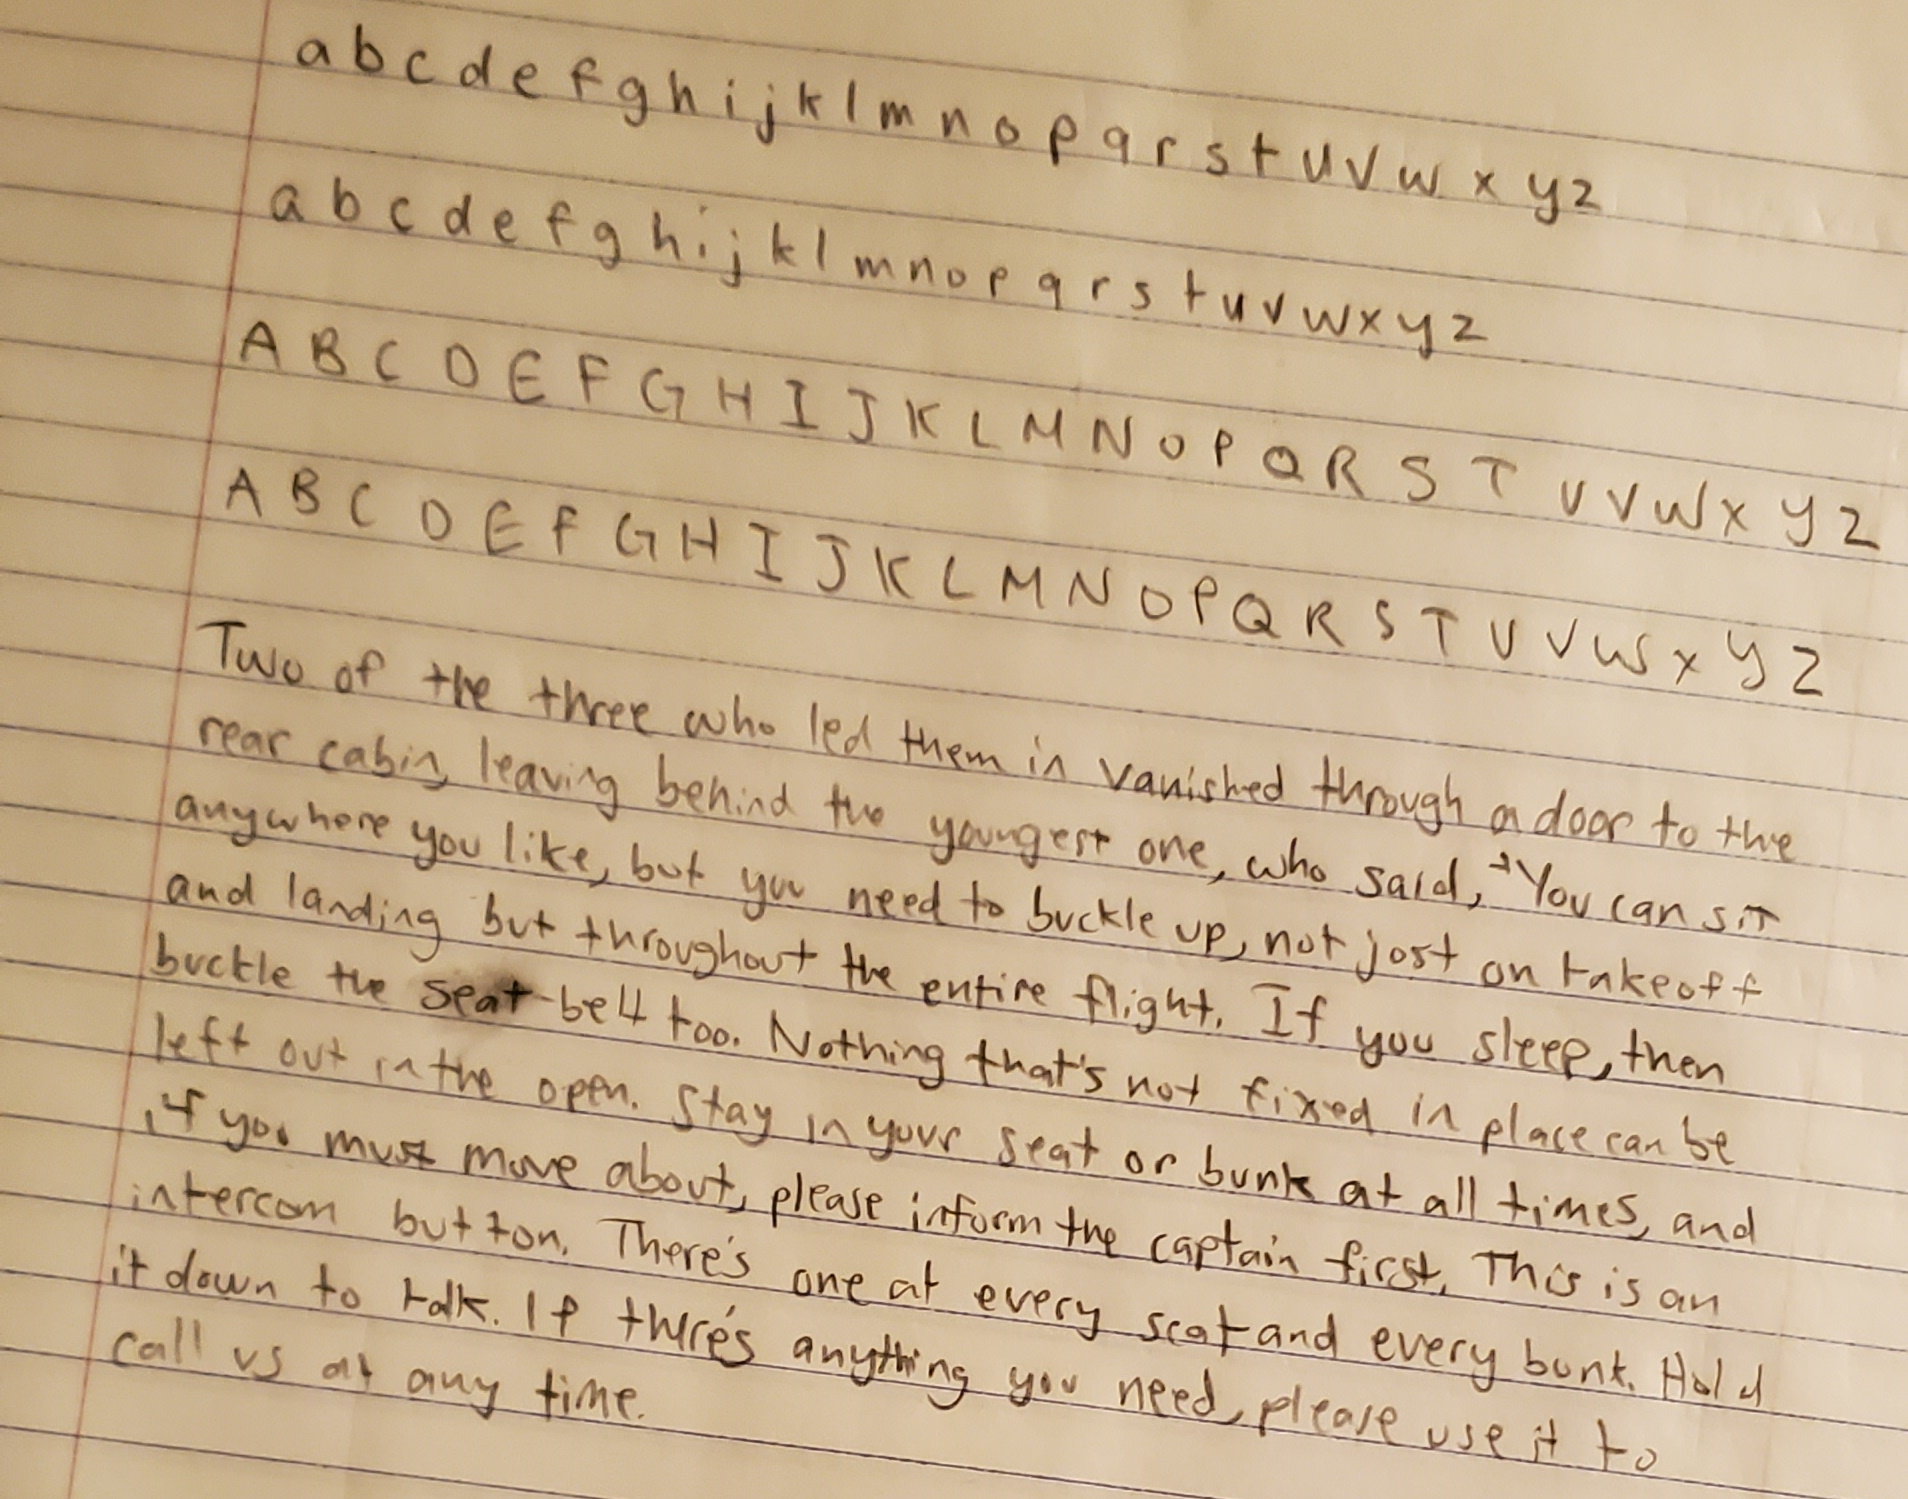 a b c d e f g h i j k l m n o p q r s t u v w x y z
a b c d e f g h i j k l m n o p q r s t u v w x y z
A B C D E F G H I J K L M N O P Q R S T U V W X Y Z
A B C D E F G H I J K L M N O P Q R S T U V W X Y Z
Two of the three who led them in vanished through a door to the
rear cabin, leaving behind the youngest one, who said, "You can sit
anywhere you like, but you need to buckle up, not just on takeoff
and landing but throughout the entire flight. If you sleep, then
buckle the seat-belt too. Nothing that's not fixed in place can be
left out in the open. Stay in your seat or bunk at all times, and
if you must move about, please inform the captain first. This is an
intercom button. There's one at every seat and every bunk. Hold
it down to talk. If there's anything you need, please use it to
call us at any time.